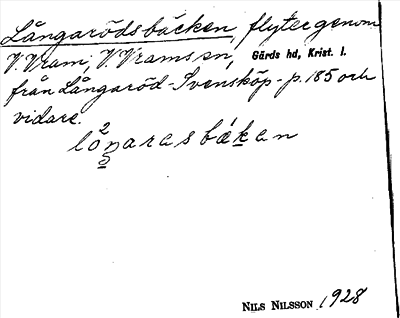 Långarödsbäcken, flyter genom
V. Vram, V. Vrams sn, Gärds hd, Krist. l.
från Långaröd - Svensköp - p. 185 och
vidare.
NILS NILSSON 1928